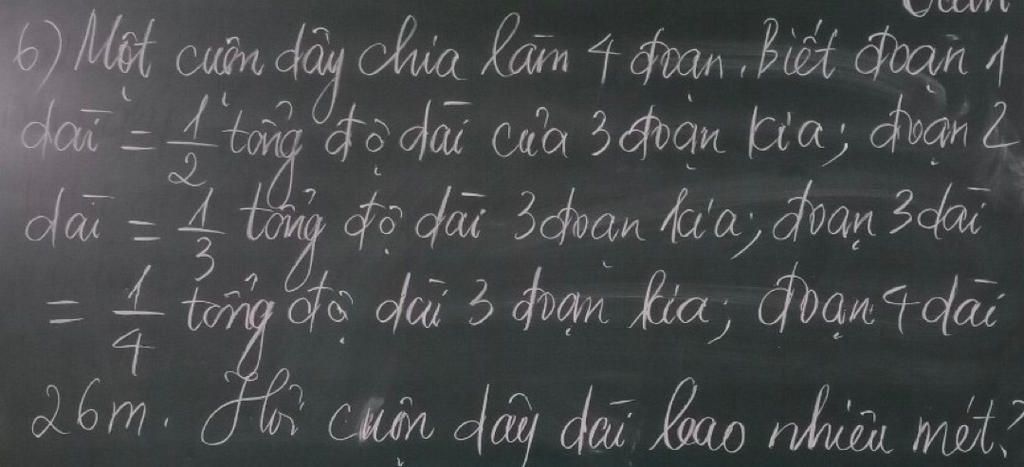 6) Một cuộn dây chia làm 4 đoạn. Biết đoạn 1
dài = 1/2 tổng độ dài của 3 đoạn kia; đoạn 2
dài = 1/3 tổng độ dài 3 đoạn kia; đoạn 3 dài
= 1/4 tổng độ dài 3 đoạn kia; đoạn 4 dài
26m. Hỏi cuộn dây dài bao nhiêu mét?